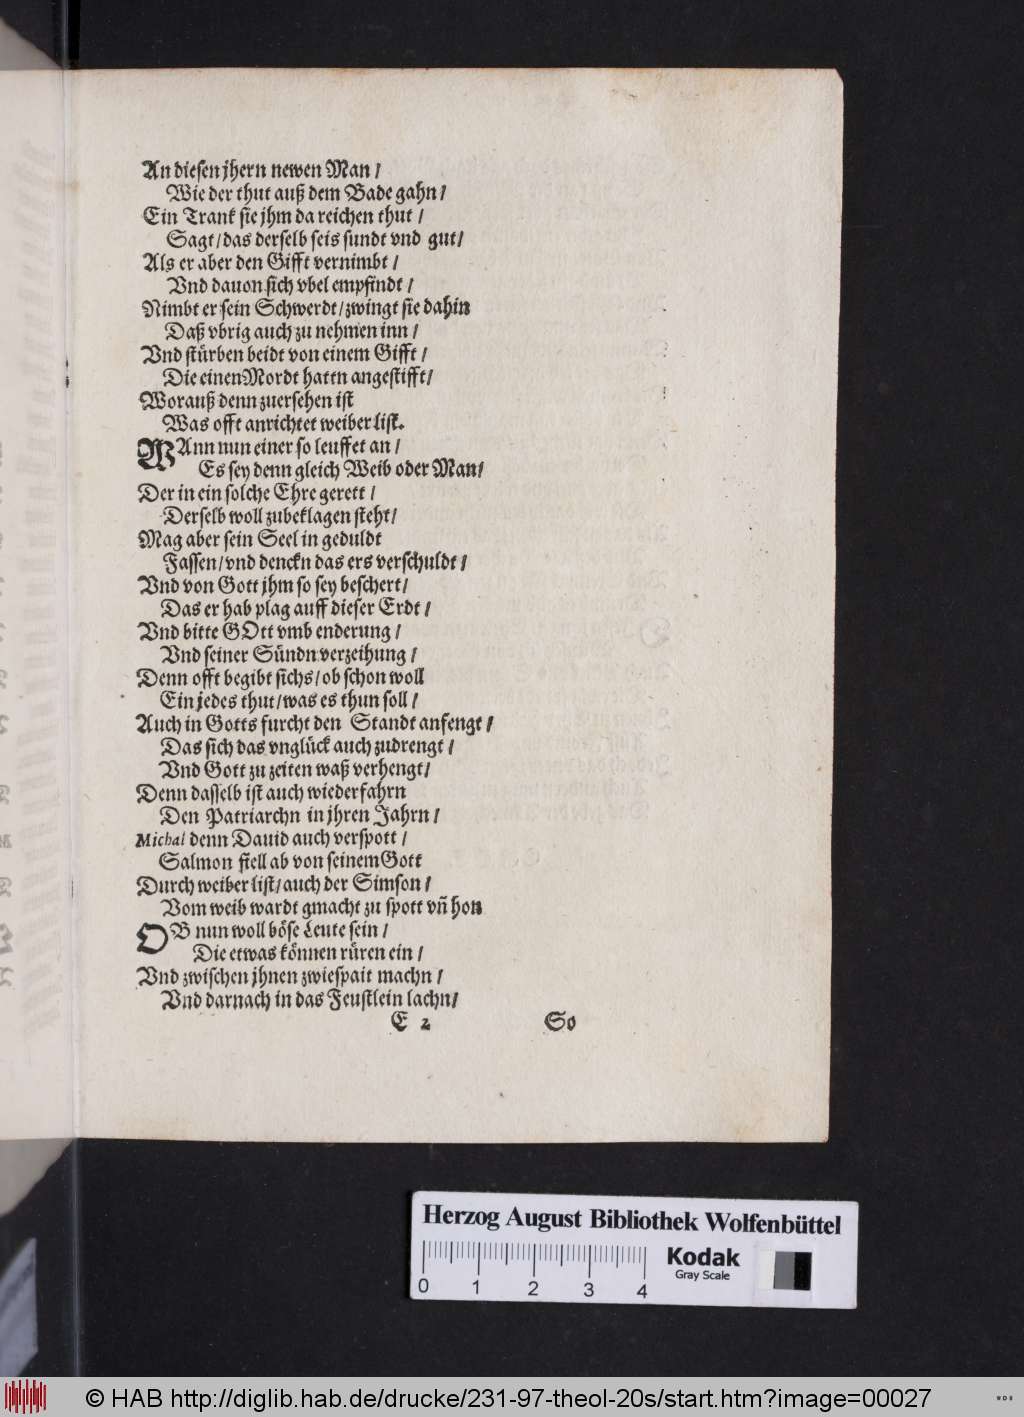 An diesen jhern newen Man /
Wie der thut auß dem Bade gahn /
Ein Trank sie jhm da reichen thut /
Sagt / das derselb seis sundt vnd gut /
Als er aber den Gifft vernimbt /
Vnd dauon sich vbel empfindt /
Nimbt er sein Schwerdt / zwingt sie dahin
Daß vbrig auch zu nehmen inn /
Vnd stürben beidt von einem Gifft /
Die einen Mordt hattn angestifft /
Worauß denn zuersehen ist
Was offt anrichtet weiber list.
WAnn nun einer so leuffet an /
Es sey denn gleich Weib oder Man /
Der in ein solche Ehre gerett /
Derselb woll zubeklagen steht /
Mag aber sein Seel in geduldt
Fassen / vnd denckn das ers verschuldt /
Vnd von Gott jhm so sey beschert /
Das er hab plag auff dieser Erdt /
Vnd bitte GOtt vmb enderung /
Vnd seiner Sündn verzeihung /
Denn offt begibt sichs / ob schon woll
Ein jedes thut / was es thun soll /
Auch in Gotts furcht den Standt anfengt /
Das sich das vnglück auch zudrengt /
Vnd Gott zu zeiten waß verhengt /
Denn dasselb ist auch wiederfahrn
Den Patriarchn in jhren Jahrn /
Michal denn Dauid auch verspott /
Salmon fiell ab von seinem Gott
Durch weiber list / auch der Simson /
Vom weib wardt gmacht zu spott vn̄ hon
OB nun woll böse Leute sein /
Die etwas können rüren ein /
Vnd zwischen jhnen zwiespait machn /
Vnd darnach in das Feustlein lachn /
E 2 So
Herzog August Bibliothek Wolfenbüttel
0 1 2 3 4
Kodak
Gray Scale
© HAB http://diglib.hab.de/drucke/231-97-theol-20s/start.htm?image=00027